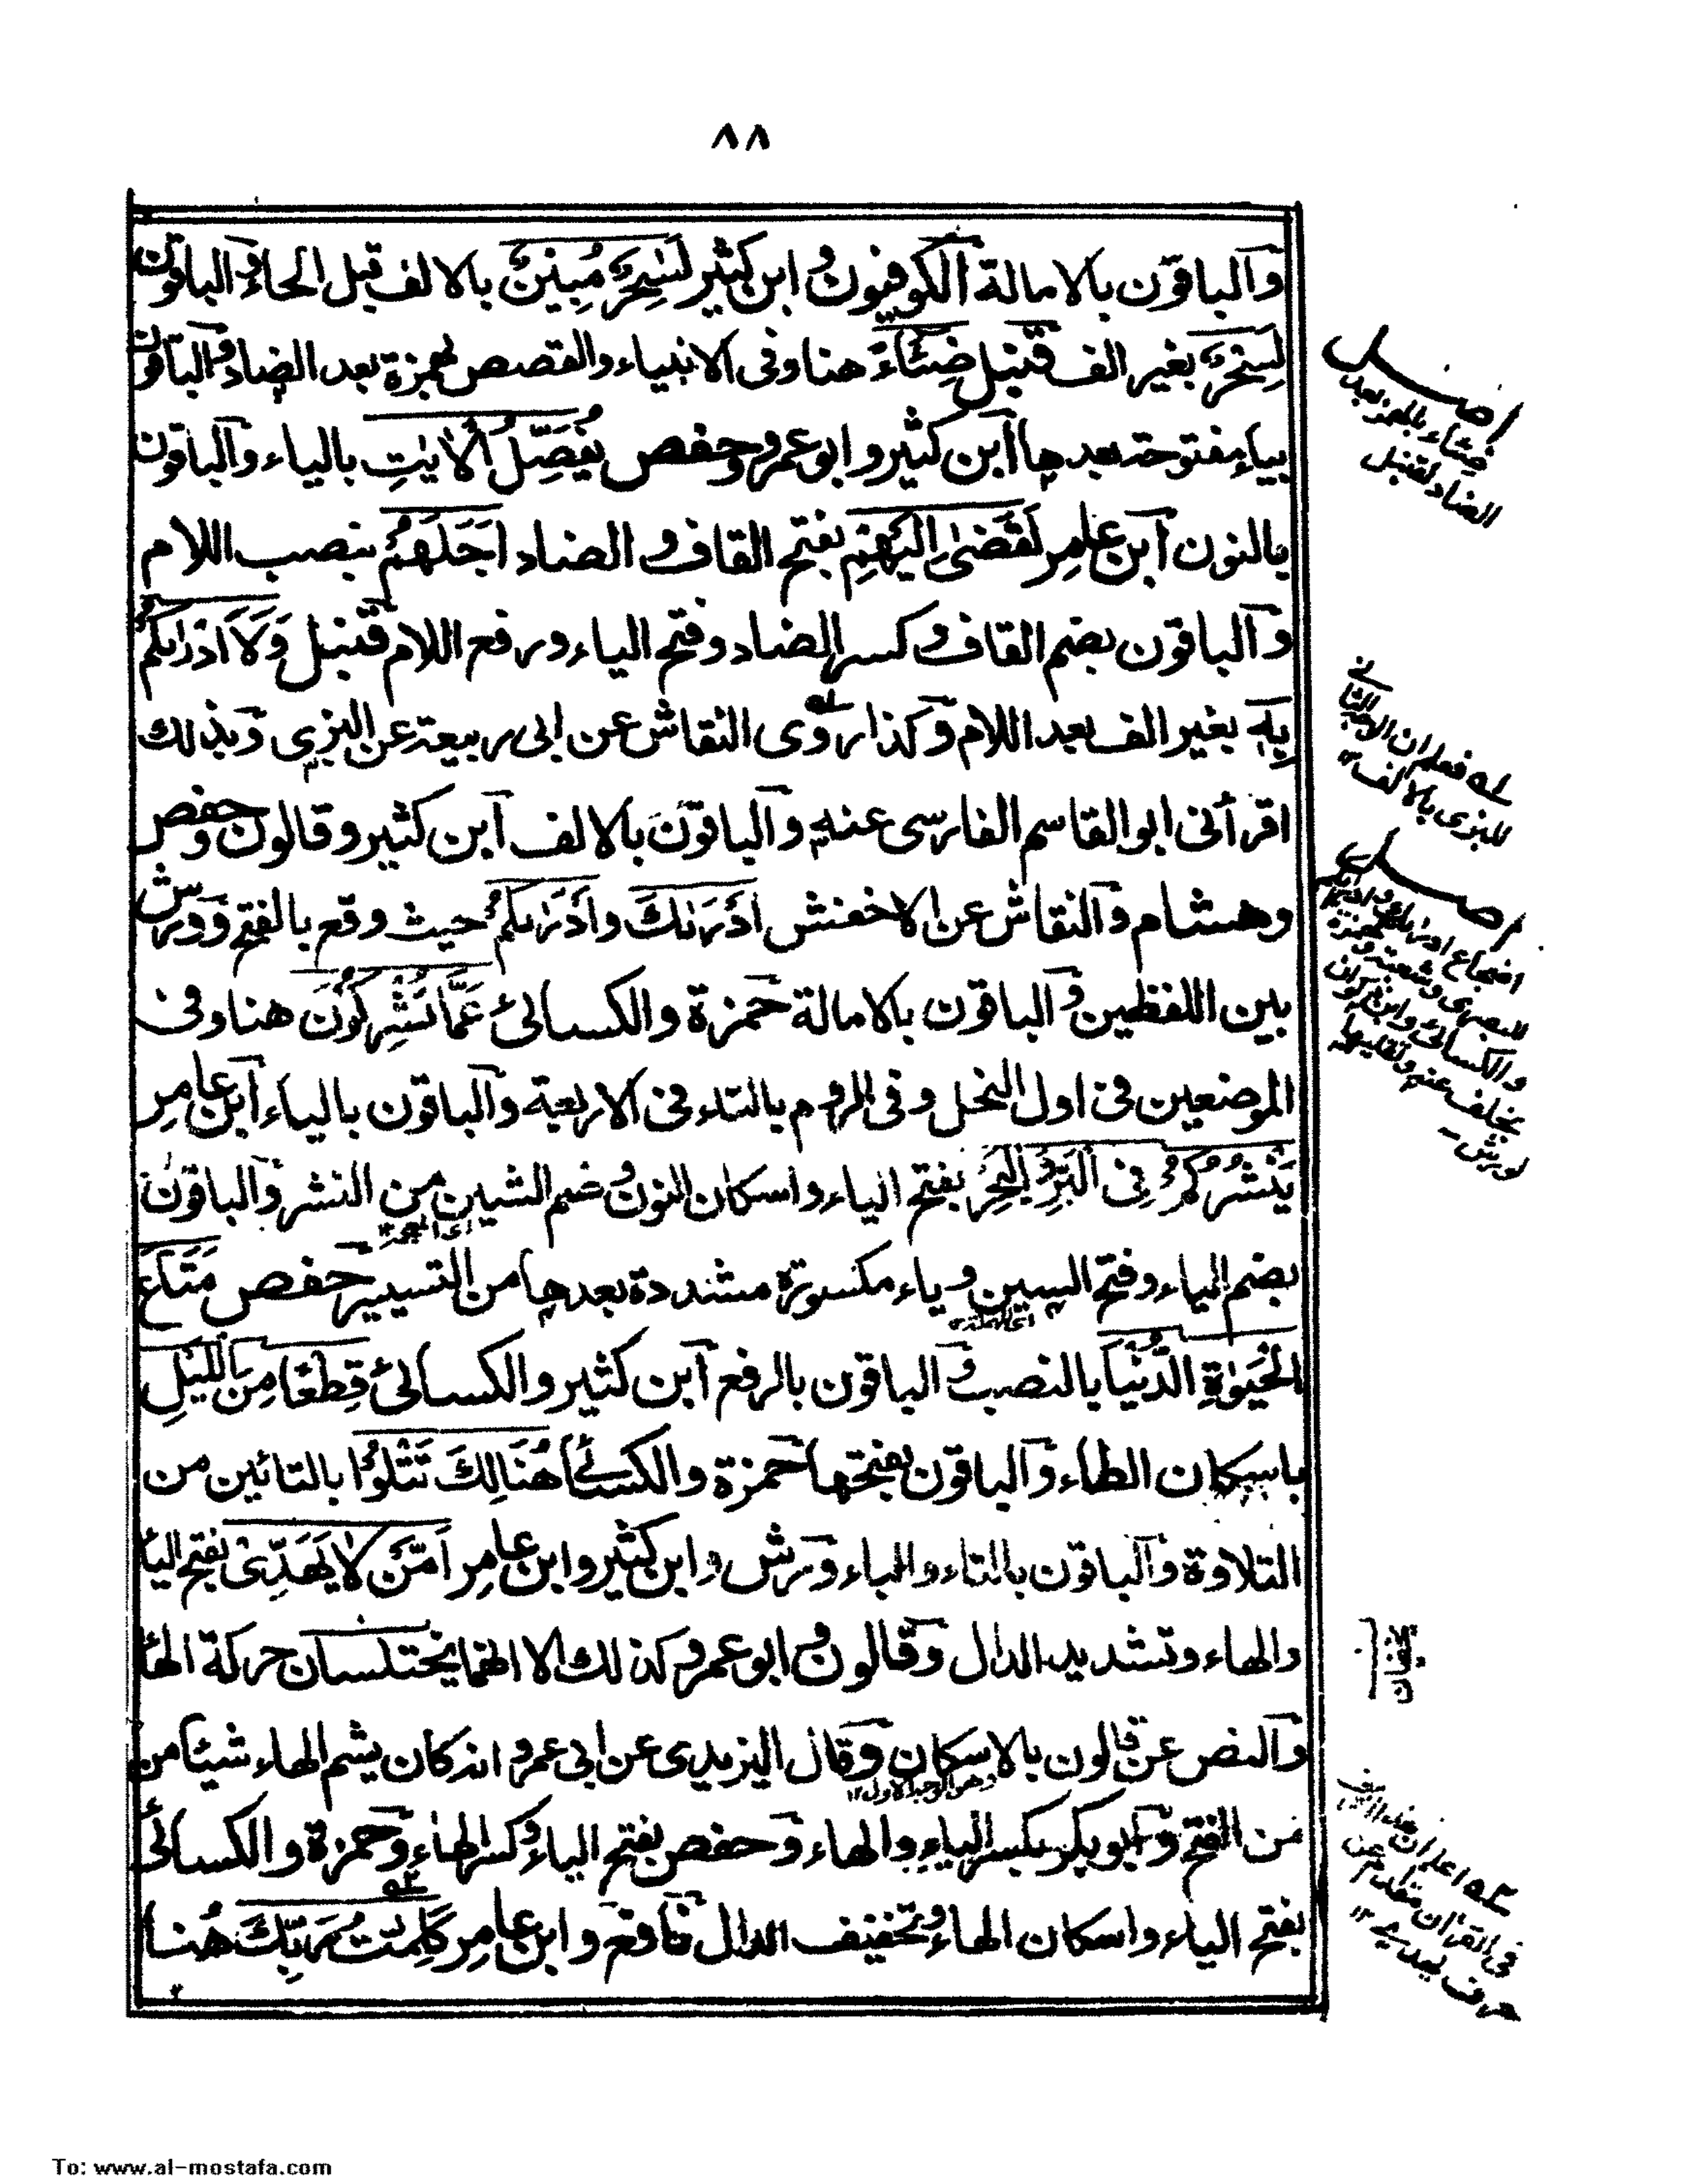 ٨٨
والباقون بالامالة الكوفيون وابن كثير لَسٰحِرٌ مُبِينٌ بالالف قبل الحاء والباقون
لَسِحْرٌ بغير الف قنبل ضِئَآءً هنا وفى الانبياء والقصص بهمزة بعد الضاد والباقون
بياء مفتوحة بعدها ابن كثير وابو عمرو وحفص يُفَصِّلُ الْاٰيٰتِ بالياء والباقون
بالنون ابن عامر لَقَضٰى اِلَيْهِمْ بفتح القاف والضاد اَجَلَهُمْ بنصب اللام
والباقون بضم القاف وكسر الضاد وفتح الياء ورفع اللام قنبل وَلَاَدْرٰىكُمْ
بِهٖ بغير الف بعد اللام وكذا روى النقاش عن ابى ربيعة عن البزى وبذلك
اقرأنى ابو القاسم الفارسى عنه والباقون بالالف ابن كثير وقالون وحفص
وهشام والنقاش عن الاخفش اَدْرٰىكَ واَدْرٰىكُمْ حيث وقع بالفتح وورش
بين اللفظين والباقون بالامالة حمزة والكسائى عَمَّا تُشْرِكُوْنَ هنا وفى
الموضعين فى اول النحل وفى الروم بالتاء فى الاربعة والباقون بالياء ابن عامر
يَنْشُرُكُمْ فِى الْبَرِّ وَالْبَحْرِ بفتح الياء واسكان النون وضم الشين من النشر والباقون
بضم الياء وفتح السين وياء مكسورة مشددة بعدها من التسيير حفص مَتَاعَ
الْحَيٰوةِ الدُّنْيَا بالنصب والباقون بالرفع ابن كثير والكسائى قِطْعًا مِنَ اللَّيْلِ
باسكان الطاء والباقون بفتحها حمزة والكسائى هُنَالِكَ تَتْلُوْا بالتائين من
التلاوة والباقون بالتاء والباء ورش وابن كثير وابن عامر اَمَّنْ لَا يَهَدِّىْ بفتح اليا
والهاء وتشديد الدال وقالون وابو عمرو كذلك الا انهما يختلسان حركة الها
والنص عن قالون بالاسكان وقال اليزيدى عن ابى عمرو انه كان يشم الهاء شيئا من
وهو الوجه الاول ١٢
من الفتح وابو بكر بكسر الياء والهاء وحفص بفتح الياء وكسر الهاء وحمزة والكسائى
بفتح الياء واسكان الهاء وتخفيف الدال نافع وابن عامر كَلِمٰتُ رَبِّكَ هُنا
اصل
ضئاء بالهمز بعد
الضاد لقنبل
فعلم ان الوجه الثانى
للبزى بالالف ١٢
اصل
للبصرى وشعبة وحمزة
والكسائى وابن ذكوان
بخلف عنه وتقليله
لورش
يخفيان
To: www.al-mostafa.com